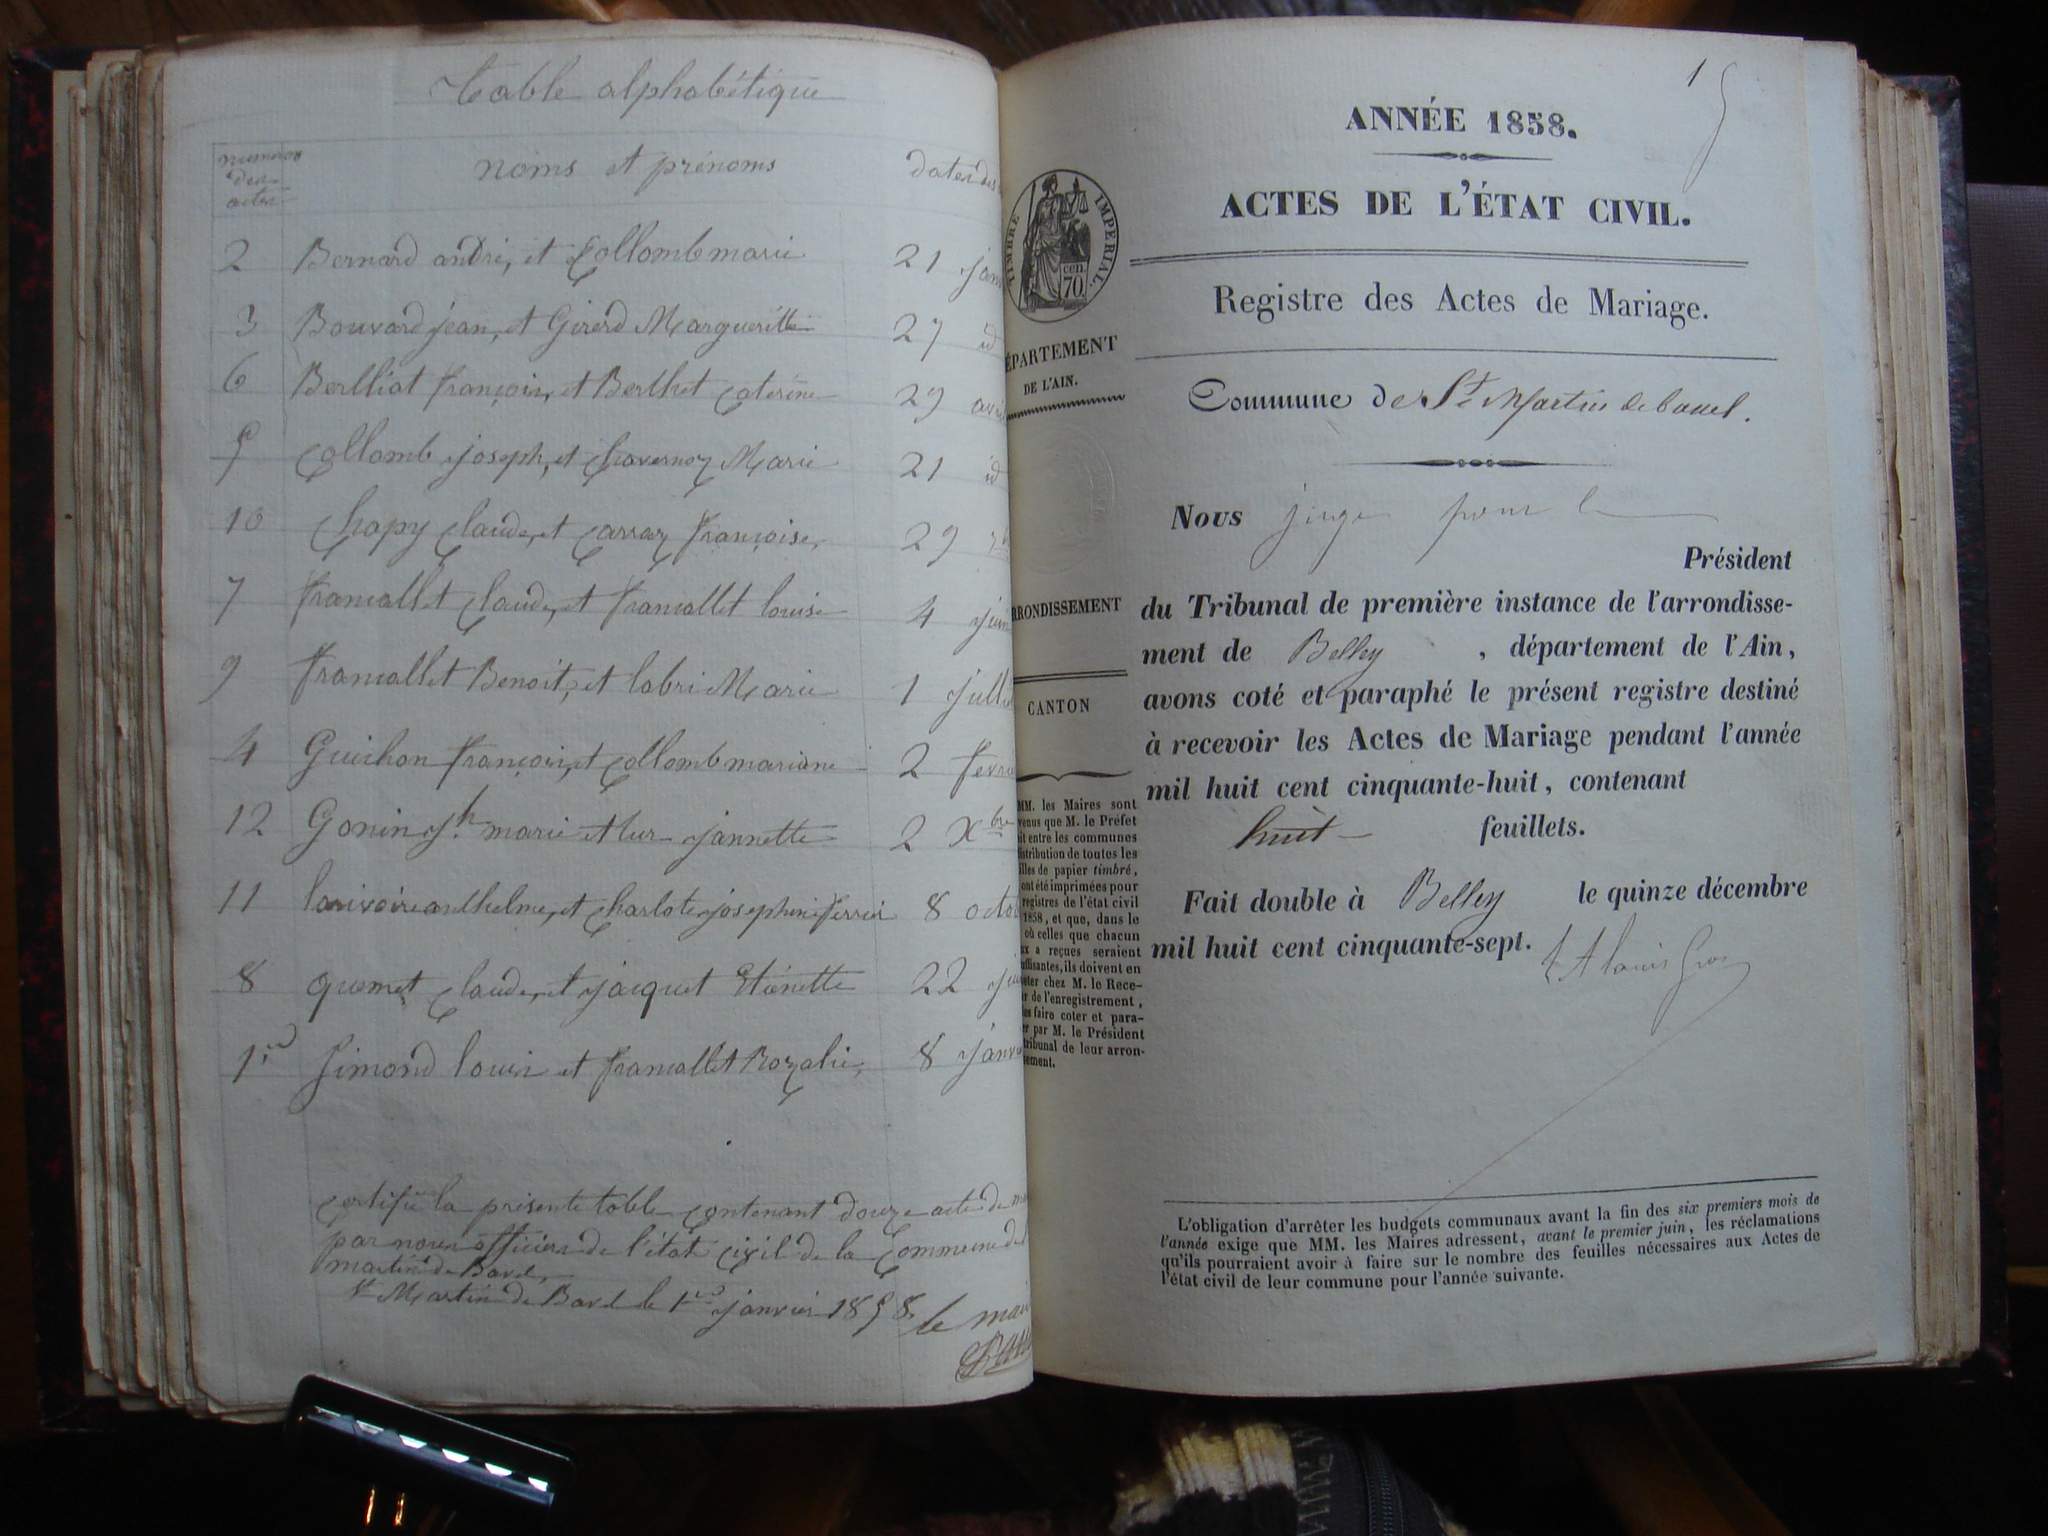 Table alphabétique
numeros des actes
noms et prénoms
dates des
2 Bernard andré, et Collomb marie 21 janv
3 Bouvard jean, et Girerd Margueritte 27 id
6 Berlliat françois, et Berthet Caterine 29 avri
5 Collomb joseph, et Chavernoz Marie 21 id
10 Chapy Claude, et Carraz françoise, 29 7b
7 francallet Claude, et francallet louise 4 juin
9 francallet Benoit, et labri Marie 1 jullie
4 Guichon françois, et Collomb mariane 2 fevrie
12 Gonin Jh marie et lur jannette 2 Xbre
11 larivoire anthelme, et Charlote josephine ferrier 8 octob
8 quemet Claude, et jacquet Etiénette 22 jui
1er Simond louis et francallet Rozalie, 8 janvi
Certifié la présente table contenant douze acte de ma
par nous officier de l'état civil de la Commune de
martin de Bavel,
St Martin de Bavel le 1er janvier 1858,
le mair
1
ANNÉE 1858.
ACTES DE L'ÉTAT CIVIL.
Registre des Actes de Mariage.
TIMBRE IMPERIAL.
70 cen.
ÉPARTEMENT
DE L'AIN.
RRONDISSEMENT
CANTON
MM. les Maires sont
venus que M. le Préfet
it entre les communes
istribution de toutes les
illes de papier timbré,
ont été imprimées pour
registres de l'état civil
1858, et que, dans le
où celles que chacun
ux a reçues seraient
uffisantes, ils doivent en
eter chez M. le Rece-
r de l'enregistrement,
les faire coter et para-
er par M. le Président
tribunal de leur arron-
sement.
Commune de St Martin de bavel.
Nous juge pour le
Président
du Tribunal de première instance de l'arrondisse-
ment de Belley , département de l'Ain,
avons coté et paraphé le présent registre destiné
à recevoir les Actes de Mariage pendant l'année
mil huit cent cinquante-huit, contenant
huit feuillets.
Fait double à Belley le quinze décembre
mil huit cent cinquante-sept.
L'obligation d'arrêter les budgets communaux avant la fin des six premiers mois de
l'année exige que MM. les Maires adressent, avant le premier juin, les réclamations
qu'ils pourraient avoir à faire sur le nombre des feuilles nécessaires aux Actes de
l'état civil de leur commune pour l'année suivante.